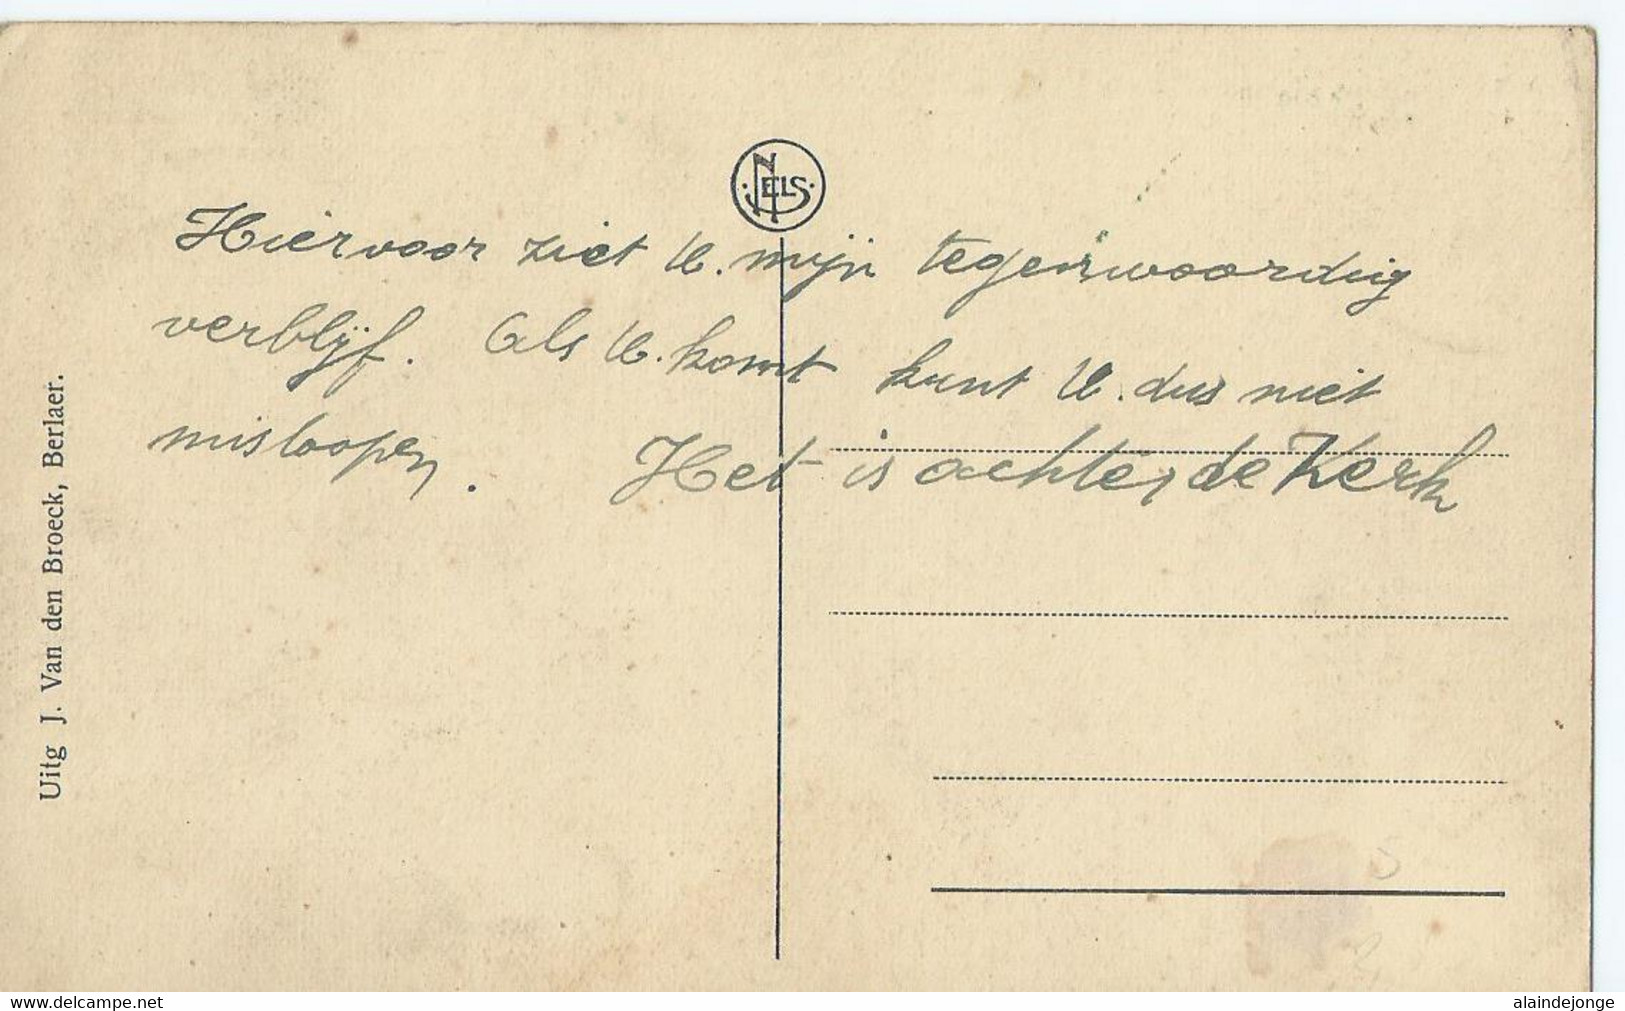 NELS
Hiervoor ziet U. mijn tegenwoordig
verblijf. Als U. komt kunt U. dus niet
misloopen. Het is achter de Kerk
Uitg J. Van den Broeck, Berlaer.
www.delcampe.net
alaindejonge